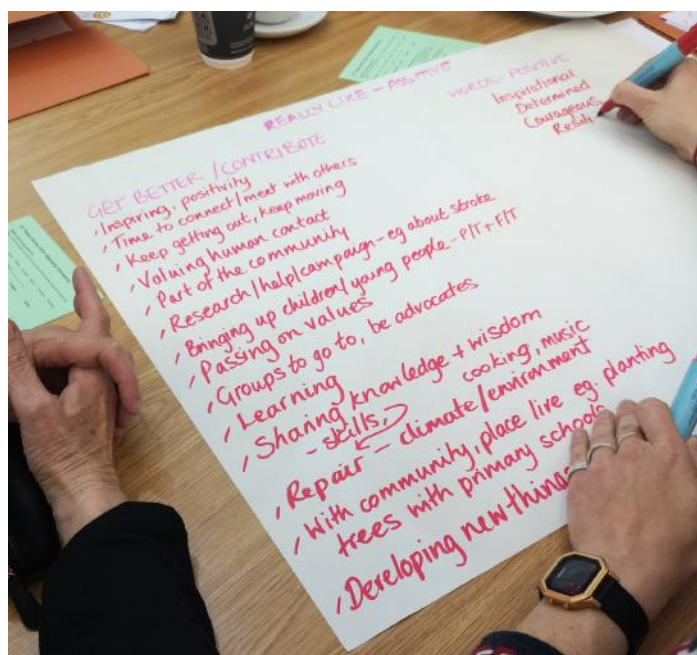 REALLY LIKE - POSITIVE
WORDS - POSITIVE
Inspirational
Determined
Courageous
Resili
GET BETTER / CONTRIBUTE
, Inspiring, positivity
, Time to connect/meet with others
, Keep getting out, keep moving
, Valuing human contact
, Part of the community
, Research/help/campaign - eg about stroke
, Bringing up children/young people - P/T + F/T
, Passing on values
, Groups to go to, be advocates
, Learning
, Sharing knowledge + wisdom
- skills, cooking, music
, Repair - climate/environment
, With community, place live eg. planting
trees with primary schools
, Developing new things